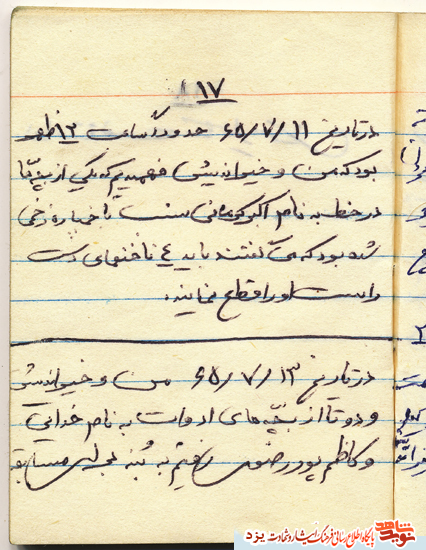 ۱۷
در تاریخ ۶۵/۷/۱۱ حدود ساعت ۱۲ ظهر
بود که من و خیراندیش فهمیدیم که یکی از بچه‌ها
در خط به نام اکبر با خمپاره زخمی
شده بود که می گفتند باید ٤ تا انگشتهای دست
راست او را قطع نمایند.
در تاریخ ۶۵/۷/۱۳ من و خیراندیش
و دو تا از بچه‌های ادوات به نام خدائی
و کاظم پور رفتیم به بنه برای مسابقه
نوید شاهد
پایگاه اطلاع رسانی فرهنگ ایثار و شهادت یزد